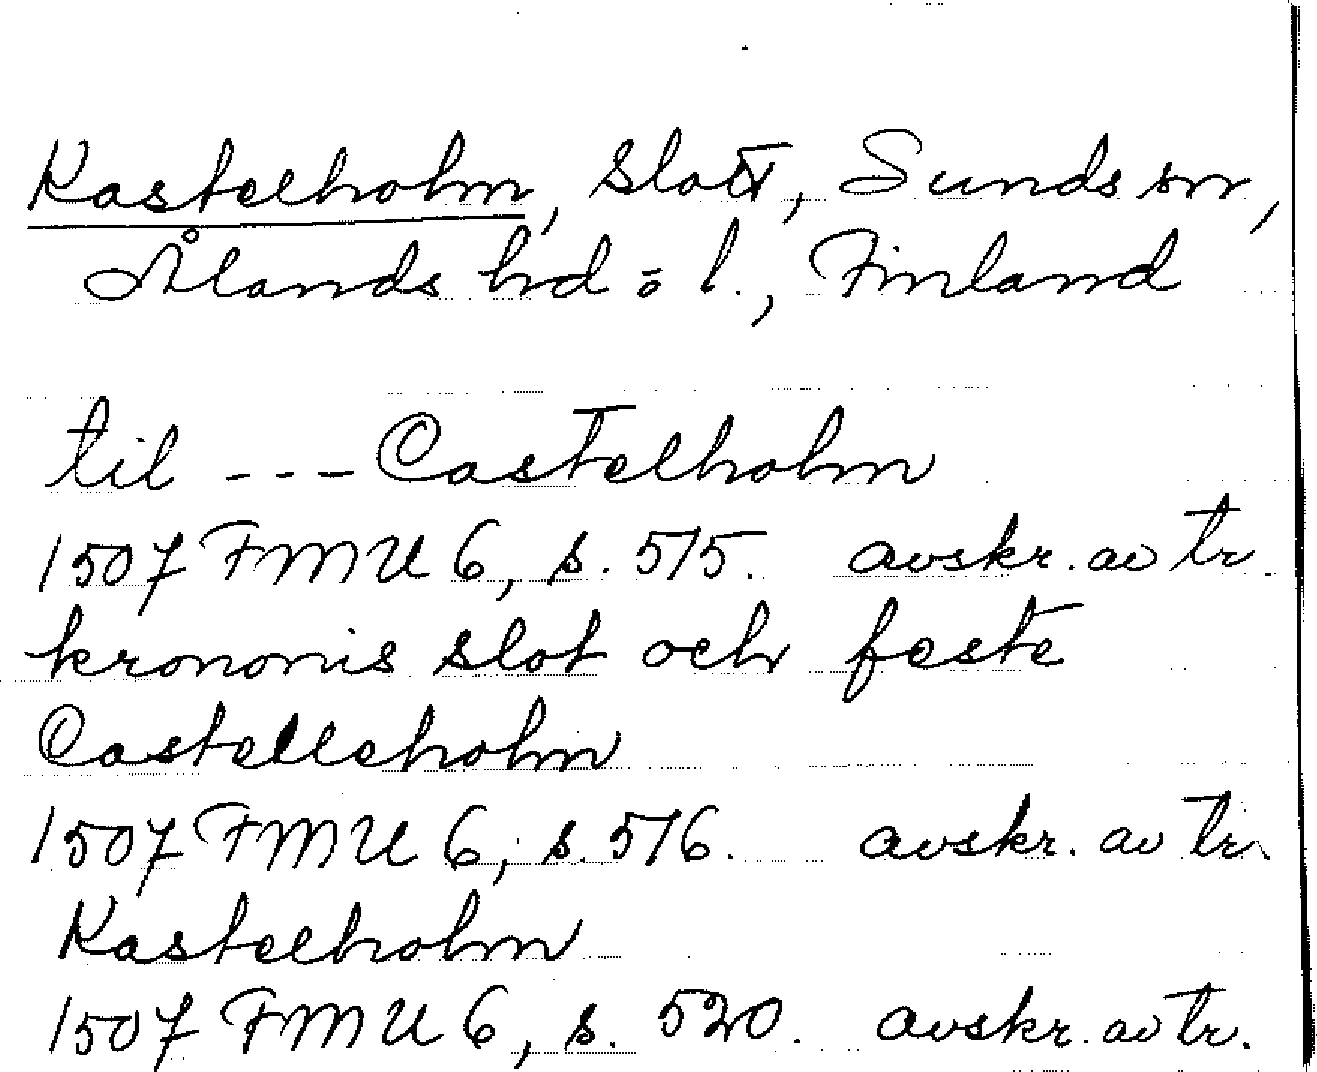 Kastelholm, slott, Sunds sn,
Ålands hd o l., Finland
til --- Castelholm
1507 FMU 6, s. 515. avskr. av tr.
krononis slot och feste
Castelleholm
1507 FMU 6, s. 516. avskr. av tr.
Kastelholm
1507 FMU 6, s. 520. avskr. av tr.